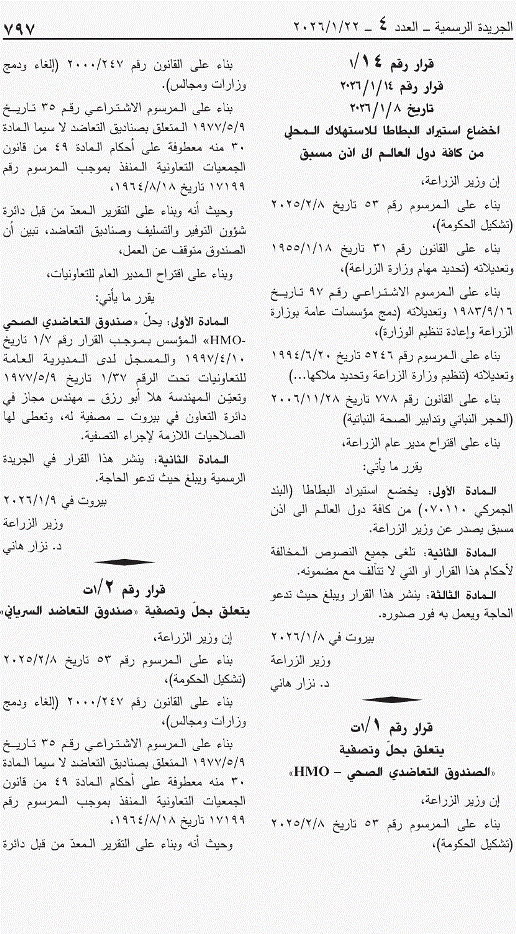 الجريدة الرسمية ــ العدد ٤ ــ ٢٠٢٦/١/٢٢
٧٩٧
قرار رقم ١/١٤
قرار رقم ٢٠٢٦/١/١٤
تاريخ ٢٠٢٦/١/٨
اخضاع استيراد البطاطا للاستهلاك المحلي
من كافة دول العالم الى اذن مسبق
إن وزير الزراعة،
بناء على المرسوم رقم ٥٣ تاريخ ٢٠٢٥/٢/٨
(تشكيل الحكومة)،
بناء على القانون رقم ٣١ تاريخ ١٩٥٥/١/١٨
وتعديلاته (تحديد مهام وزارة الزراعة)،
بناء على المرسوم الاشتراعي رقم ٩٧ تاريخ
١٩٨٣/٩/١٦ وتعديلاته (دمج مؤسسات عامة بوزارة
الزراعة وإعادة تنظيم الوزارة)،
بناء على المرسوم رقم ٥٢٤٦ تاريخ ١٩٩٤/٦/٢٠
وتعديلاته (تنظيم وزارة الزراعة وتحديد ملاكها...)
بناء على القانون رقم ٧٧٨ تاريخ ٢٠٠٦/١١/٢٨
(الحجر النباتي وتدابير الصحة النباتية)
بناء على اقتراح مدير عام الزراعة،
يقرر ما يأتي:
المادة الأولى: يخضع استيراد البطاطا (البند
الجمركي ٠٧٠١١٠) من كافة دول العالم الى اذن
مسبق يصدر عن وزير الزراعة.
المادة الثانية: تلغى جميع النصوص المخالفة
لأحكام هذا القرار او التي لا تتآلف مع مضمونه.
المادة الثالثة: ينشر هذا القرار ويبلغ حيث تدعو
الحاجة ويعمل به فور صدوره.
بيروت في ٢٠٢٦/١/٨
وزير الزراعة
د. نزار هاني
قرار رقم ١/١ت
يتعلق بحلّ وتصفية
«الصندوق التعاضدي الصحي – HMO»
إن وزير الزراعة،
بناء على المرسوم رقم ٥٣ تاريخ ٢٠٢٥/٢/٨
(تشكيل الحكومة)،
بناء على القانون رقم ٢٠٠٠/٢٤٧ (إلغاء ودمج
وزارات ومجالس).
بناء على المرسوم الاشتراعي رقم ٣٥ تاريخ
١٩٧٧/٥/٩ المتعلق بصناديق التعاضد لا سيما المادة
٣٠ منه معطوفة على أحكام المادة ٤٩ من قانون
الجمعيات التعاونية المنفذ بموجب المرسوم رقم
١٧١٩٩ تاريخ ١٩٦٤/٨/١٨،
وحيث أنه وبناء على التقرير المعدّ من قبل دائرة
شؤون التوفير والتسليف وصناديق التعاضد، تبين أن
الصندوق متوقف عن العمل،
وبناء على اقتراح المدير العام للتعاونيات،
يقرر ما يأتي:
المادة الأولى: يحلّ «صندوق التعاضدي الصحي
-HMO» المؤسس بموجب القرار رقم ١/٧ تاريخ
١٩٩٧/٤/١٠ والمسجل لدى المديرية العامة
للتعاونيات تحت الرقم ١/٣٧ تاريخ ١٩٧٧/٥/٩
وتعيّن المهندسة هلا أبو رزق – مهندس مجاز في
دائرة التعاون في بيروت – مصفية له، وتعطى لها
الصلاحيات اللازمة لإجراء التصفية.
المادة الثانية: ينشر هذا القرار في الجريدة
الرسمية ويبلغ حيث تدعو الحاجة.
بيروت في ٢٠٢٦/١/٩
وزير الزراعة
د. نزار هاني
قرار رقم ١/٢ت
يتعلق بحلّ وتصفية «صندوق التعاضد السرياني»
إن وزير الزراعة،
بناء على المرسوم رقم ٥٣ تاريخ ٢٠٢٥/٢/٨
(تشكيل الحكومة)،
بناء على القانون رقم ٢٠٠٠/٢٤٧ (إلغاء ودمج
وزارات ومجالس)،
بناء على المرسوم الاشتراعي رقم ٣٥ تاريخ
١٩٧٧/٥/٩ المتعلق بصناديق التعاضد لا سيما المادة
٣٠ منه معطوفة على أحكام المادة ٤٩ من قانون
الجمعيات التعاونية المنفذ بموجب المرسوم رقم
١٧١٩٩ تاريخ ١٩٦٤/٨/١٨،
وحيث أنه وبناء على التقرير المعدّ من قبل دائرة